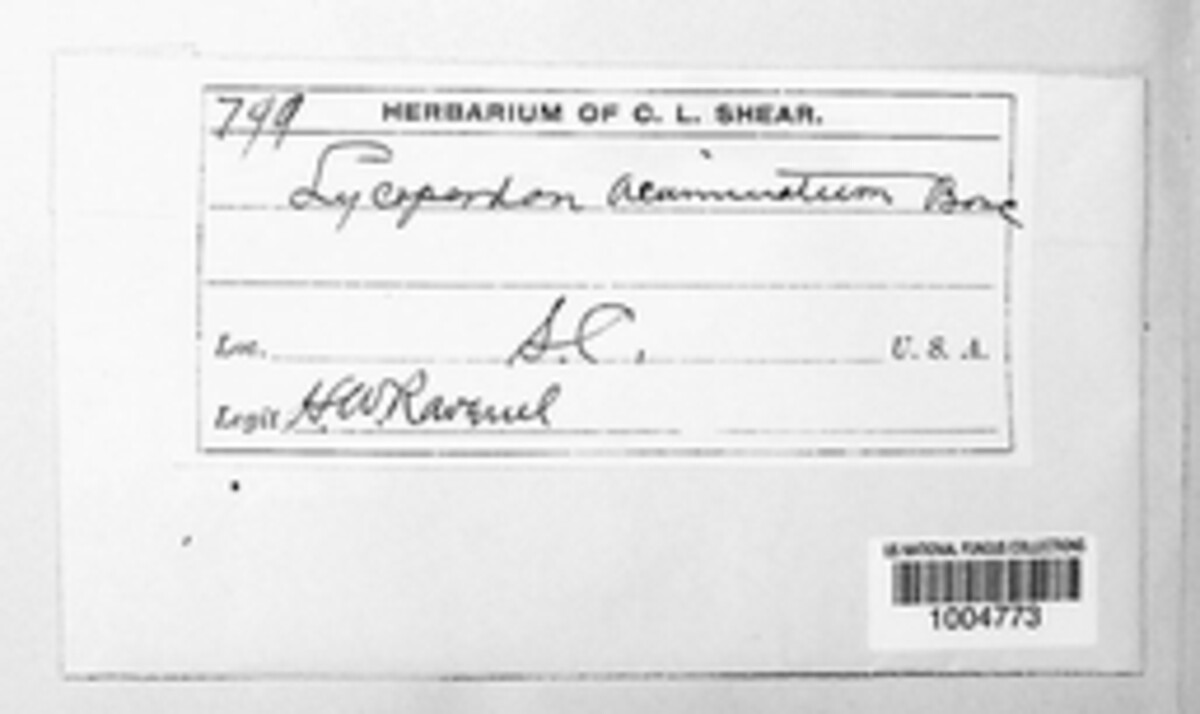 799 HERBARIUM OF C. L. SHEAR.
Lycoperdon acuminatum Bosc
Loc. S.C. U. S. A.
Legit H.W. Ravenel
US NATIONAL FUNGUS COLLECTIONS
1004773